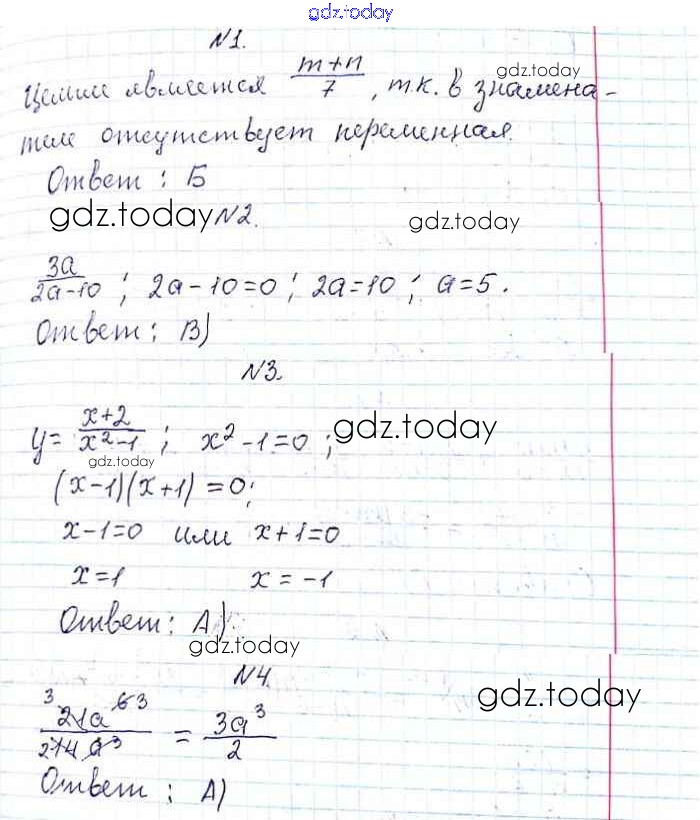 gdz.today
N1.
Целым является m+n/7, т.к. в знамена- gdz.today
теле отсутствует переменная.
Ответ: Б
gdz.today N2. gdz.today
3a/2a-10; 2a-10=0; 2a=10; a=5.
Ответ: В)
N3.
y= x+2/x²-1; x²-1=0; gdz.today
gdz.today
(x-1)(x+1)=0;
x-1=0 или x+1=0
x=1 x=-1
Ответ: А)
gdz.today
N4.
gdz.today
³21a⁶³/²14a³ = 3a³/2
Ответ: А)